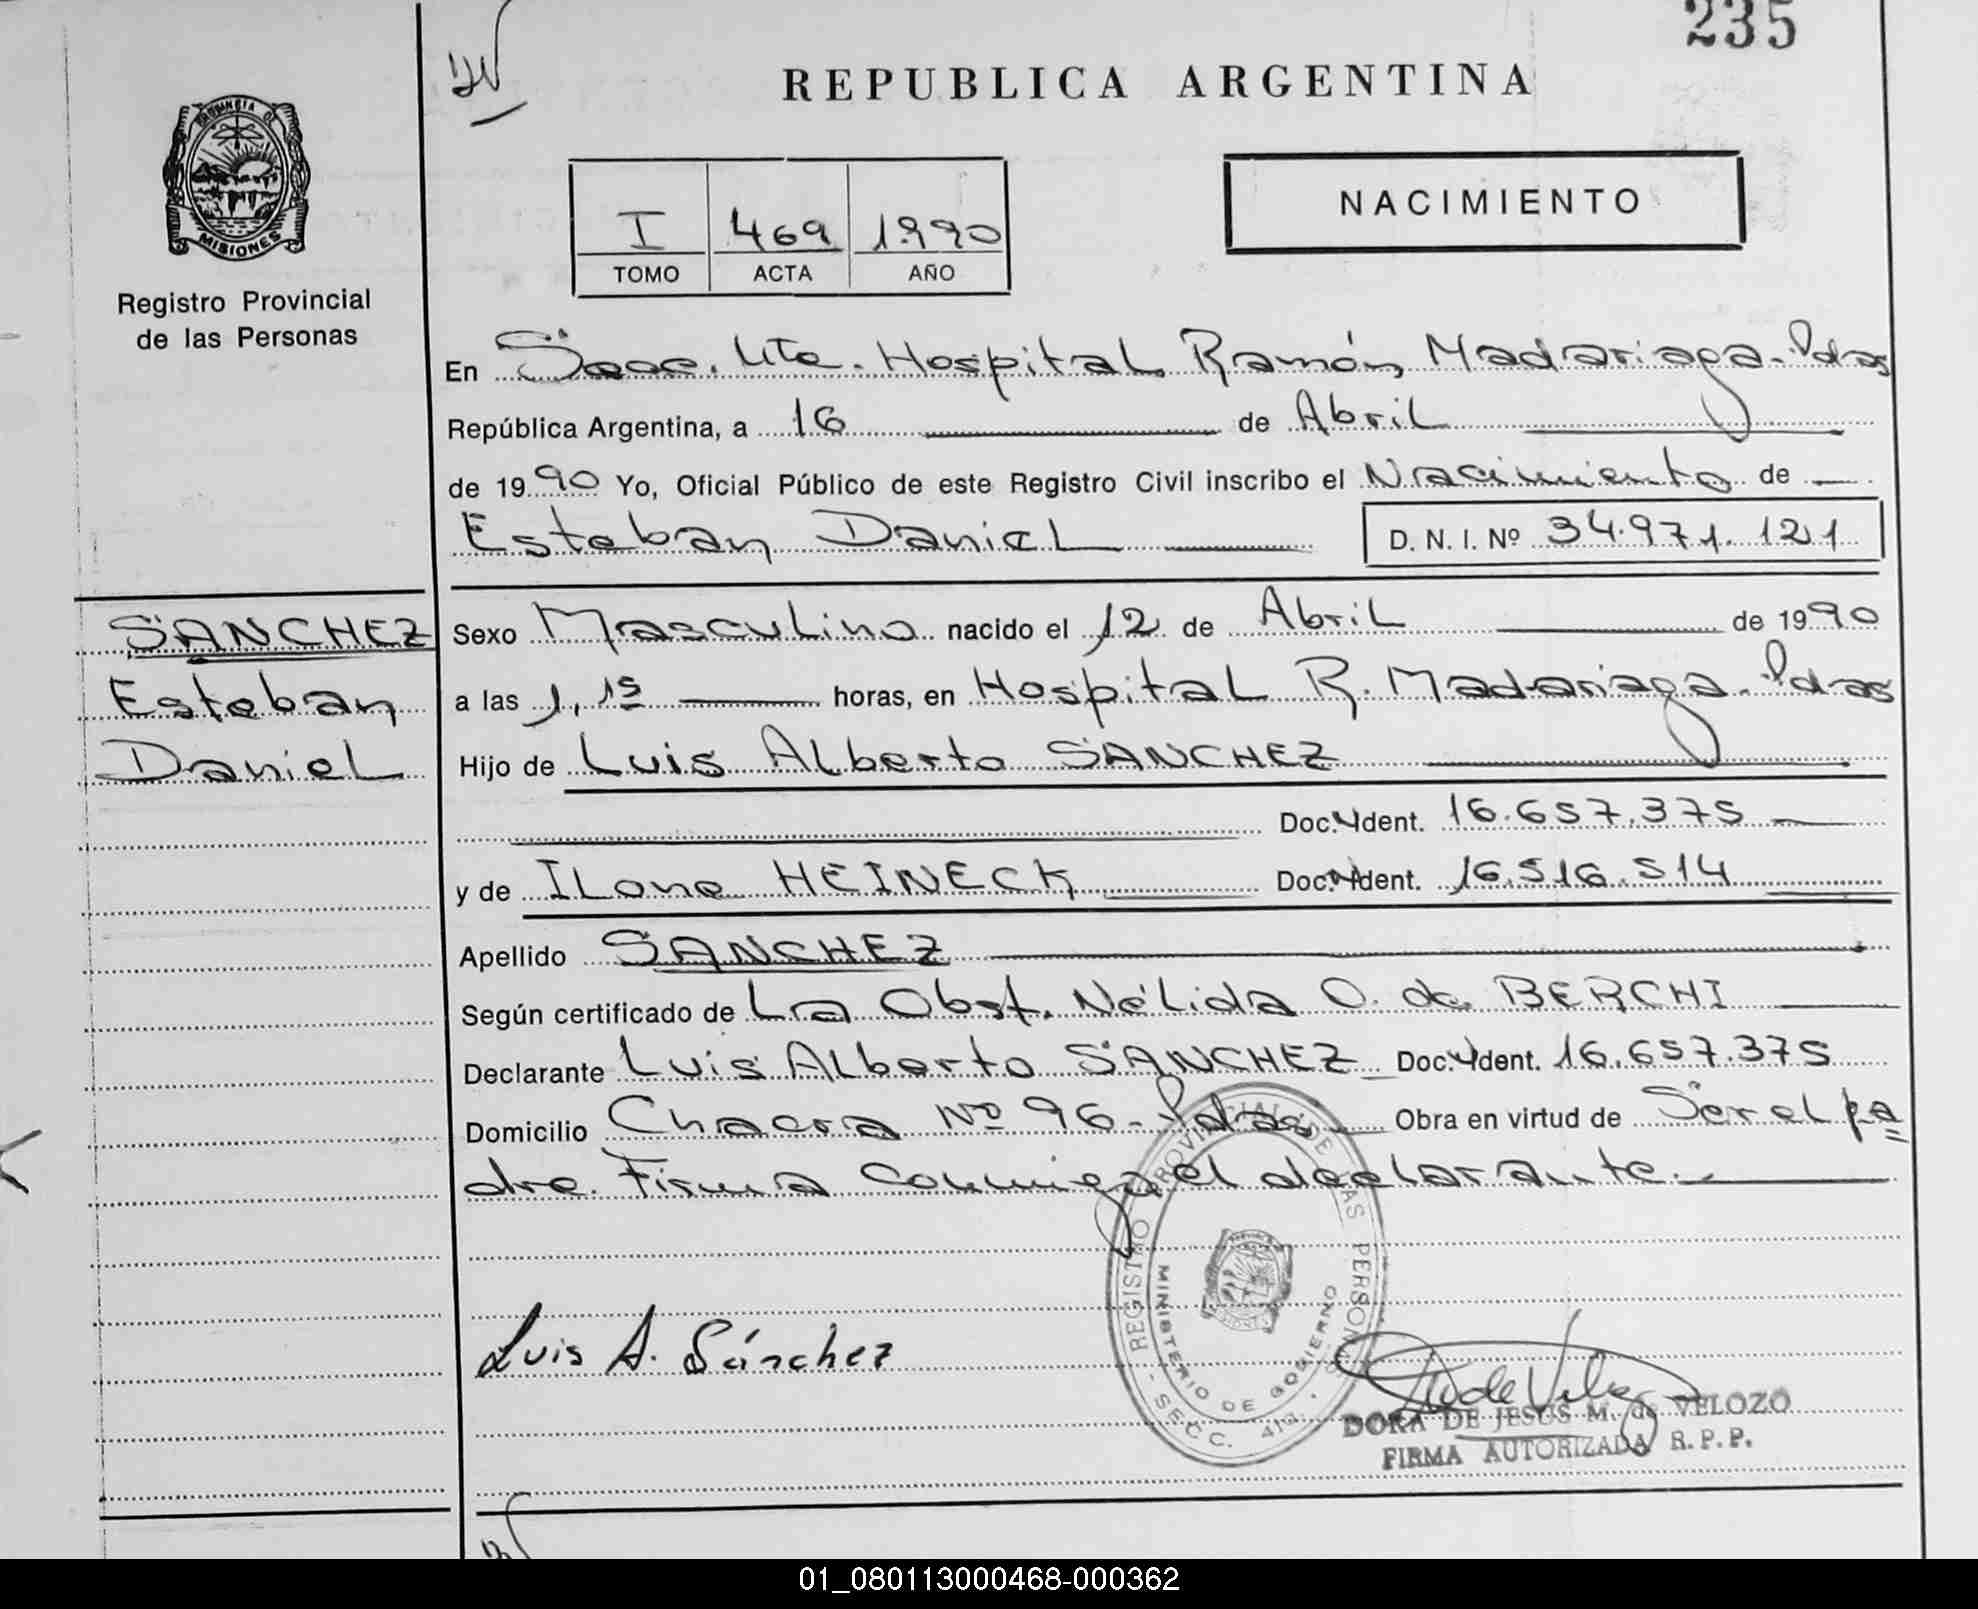 235
REPUBLICA ARGENTINA
PROVINCIA DE
MISIONES
Registro Provincial
de las Personas
NACIMIENTO
I 469 1.990
TOMO ACTA AÑO
En Secc. 4ta. Hospital Ramón Madariaga - Pdas
República Argentina, a 16 de Abril
de 1990 Yo, Oficial Público de este Registro Civil inscribo el Nacimiento de
Esteban Daniel D. N. I. Nº 34.971.121
SANCHEZ
Esteban
Daniel
Sexo Masculino nacido el 12 de Abril de 1990
a las 1,15 horas, en Hospital R. Madariaga - Pdas
Hijo de Luis Alberto SANCHEZ
Doc. Ident. 16.657.375
y de ILone HEINECK Doc. Ident. 16.516.514
Apellido SANCHEZ
Según certificado de La Obst. Nélida O. de BERCHI
Declarante Luis Alberto SANCHEZ Doc. Ident. 16.657.375
Domicilio Chacra Nº 96 - Pdas Obra en virtud de Ser el pa
dre. Firma conmigo el declarante.
REGISTRO PROVINCIAL DE LAS PERSONAS
MINISTERIO DE GOBIERNO
- SECC. 4ta. -
Luis A. Sánchez
DORA DE JESUS M. de VELOZO
FIRMA AUTORIZADA R. P. P.
01_080113000468-000362